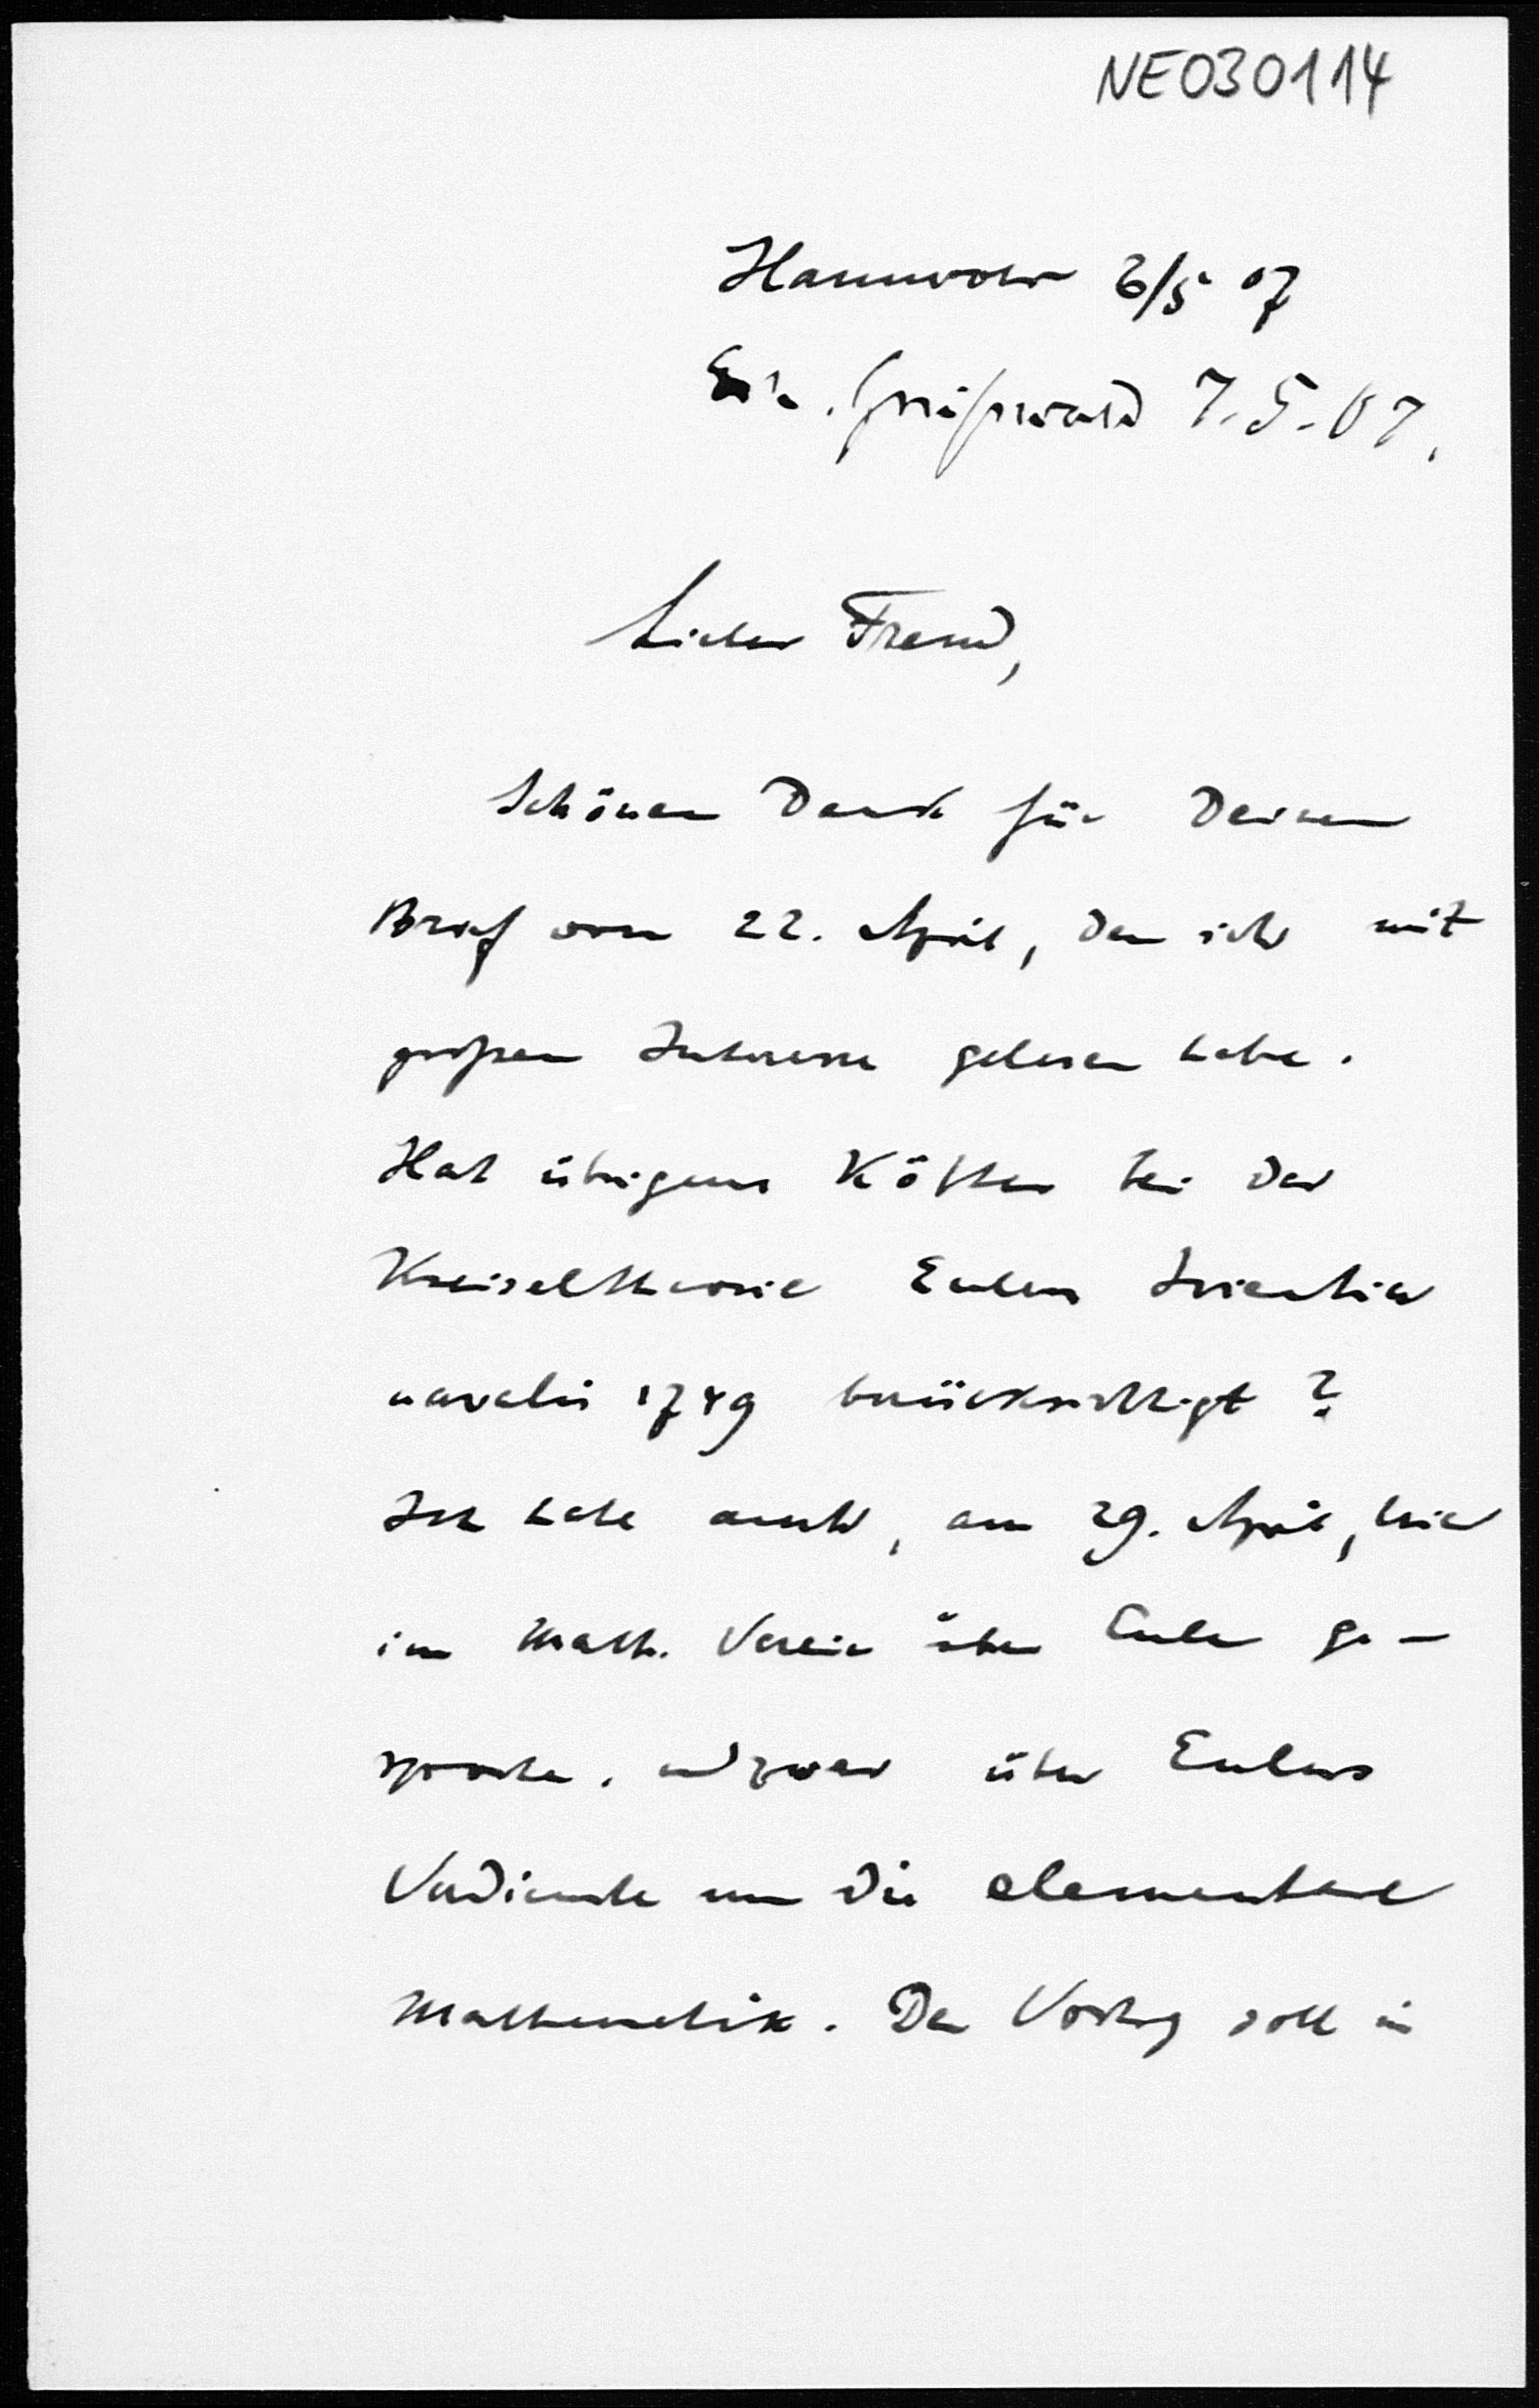 NE030114
Hannover 6/5 07
Erh. Greifswald 7.5.07.
Lieber Freund,
Schönen Dank für Deinen
Brief vom 22. April, den ich mit
großem Interesse gelesen habe.
Hat übrigens Kötter bei der
Kreiseltheorie Eulers Scientia
navalis 1749 berücksichtigt?
Ich habe auch, am 29. April, hier
im Math. Verein über Euler ge-
sprochen, und zwar über Eulers
Verdienste um die elementare
Mathematik. Der Vortrag soll in